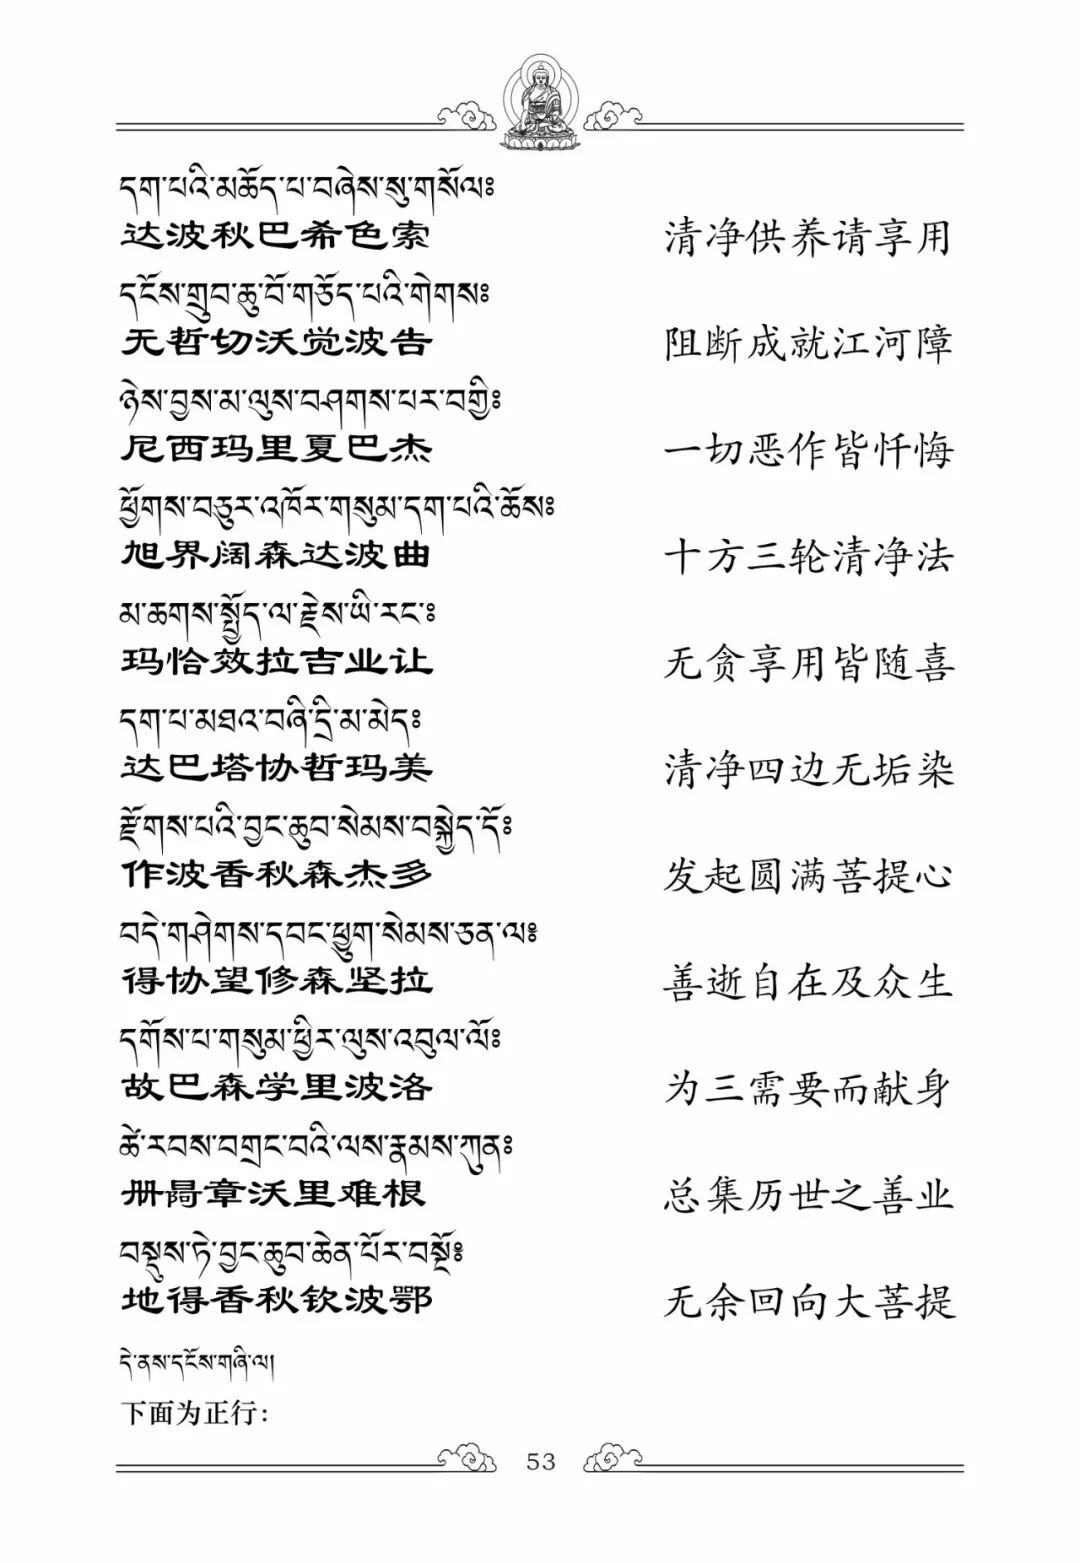 དག་པའི་མཆོད་པ་བཞེས་སུ་གསོལ༔
达波秋巴希色索 清净供养请享用
དངོས་གྲུབ་ཆུ་བོ་གཅོད་པའི་གེགས༔
无哲切沃觉波告 阻断成就江河障
ཉེས་བྱས་མ་ལུས་བཤགས་པར་བགྱི༔
尼西玛里夏巴杰 一切恶作皆忏悔
ཕྱོགས་བཅུར་འཁོར་གསུམ་དག་པའི་ཆོས༔
旭界阔森达波曲 十方三轮清净法
མ་ཆགས་སྤྱོད་ལ་རྗེས་ཡི་རང་༔
玛恰效拉吉业让 无贪享用皆随喜
དག་པ་མཐའ་བཞི་དྲི་མ་མེད༔
达巴塔协哲玛美 清净四边无垢染
རྫོགས་པའི་བྱང་ཆུབ་སེམས་བསྐྱེད་དོ༔
作波香秋森杰多 发起圆满菩提心
བདེ་གཤེགས་དབང་ཕྱུག་སེམས་ཅན་ལ༔
得协望修森坚拉 善逝自在及众生
དགོས་པ་གསུམ་ཕྱིར་ལུས་འབུལ་ལོ༔
故巴森学里波洛 为三需要而献身
ཚེ་རབས་བགྲང་བའི་ལས་རྣམས་ཀུན༔
册章沃里难根 总集历世之善业
བསྡུས་ཏེ་བྱང་ཆུབ་ཆེན་པོར་བསྔོ༔
地得香秋钦波鄂 无余回向大菩提
དེ་ནས་དངོས་གཞི་ལ།
下面为正行：
53